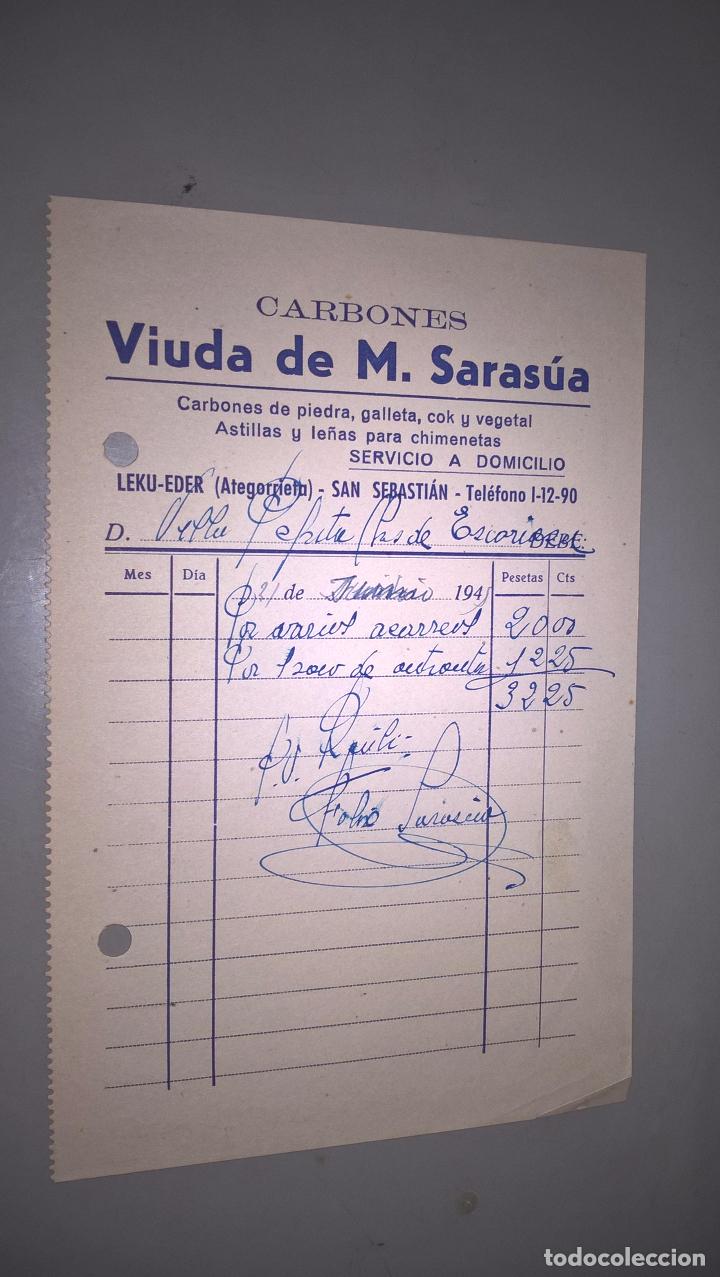 CARBONES
Viuda de M. Sarasúa
Carbones de piedra, galleta, cok y vegetal
Astillas y leñas para chimenetas
SERVICIO A DOMICILIO
LEKU-EDER (Ategorrieta) - SAN SEBASTIÁN - Teléfono 1-12-90
D. Villa Pepita Pas de Escoriaza DEBE:
Mes Día Pesetas Cts
21 de Junio 194
Por varios acarreos 20 00
Por 1 saco de 12 25
32 25
Sarasúa
todocoleccion.net